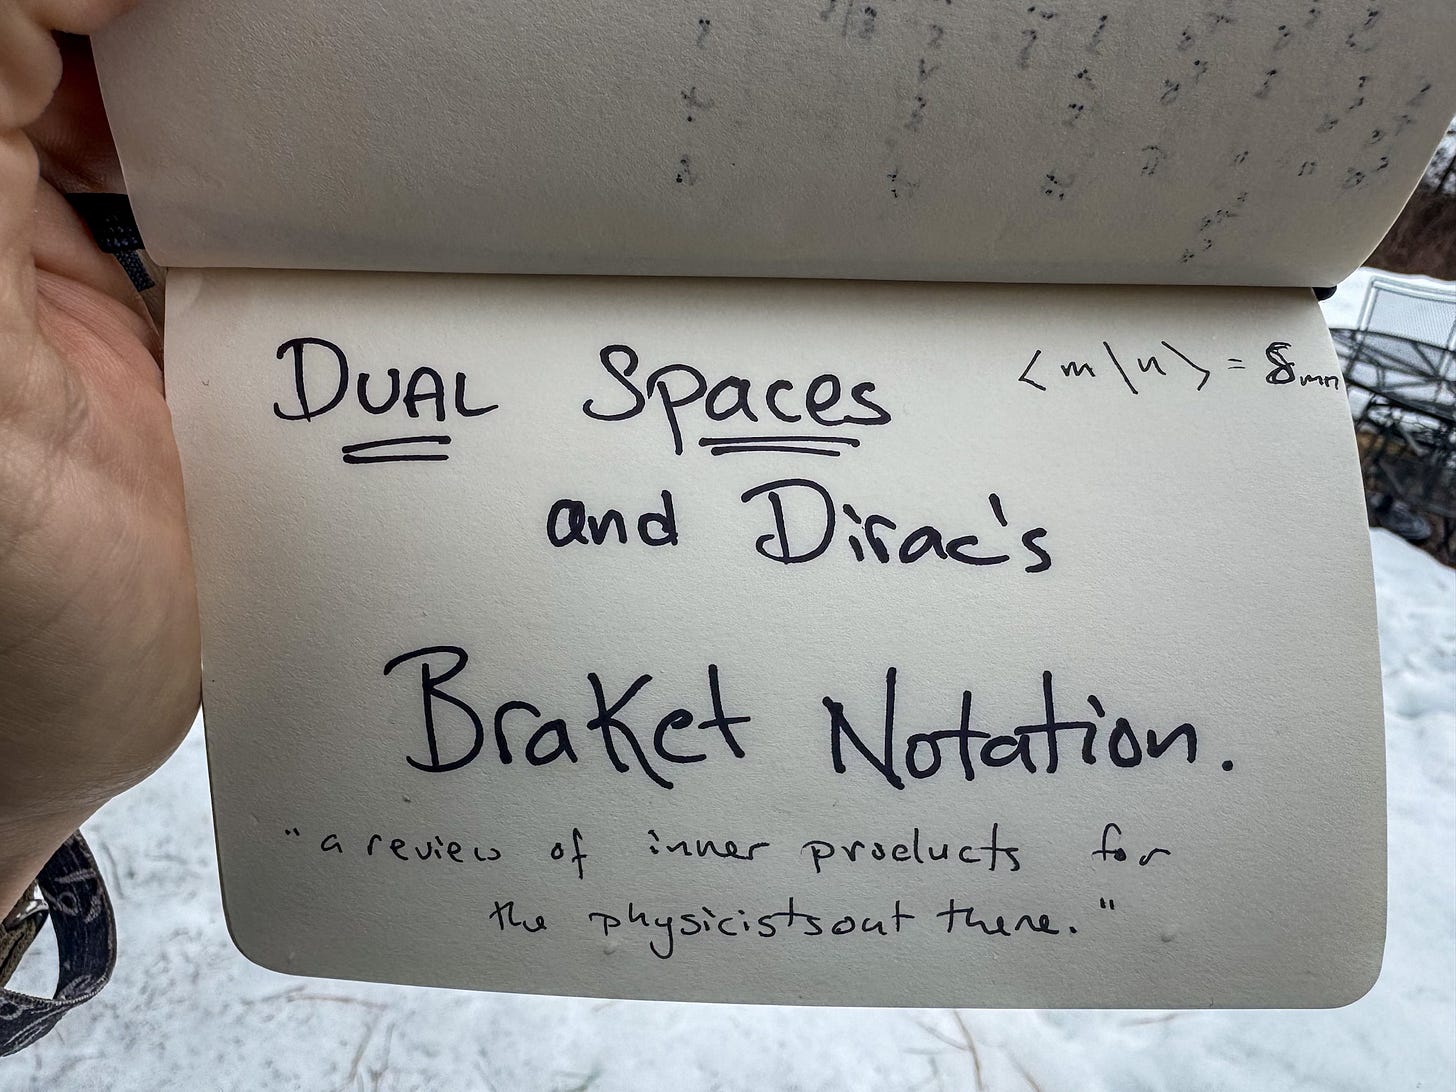 DUAL Spaces
⟨m|n⟩ = δmn
and Dirac's
BraKet Notation.
"a review of inner products for
the physicists out there."